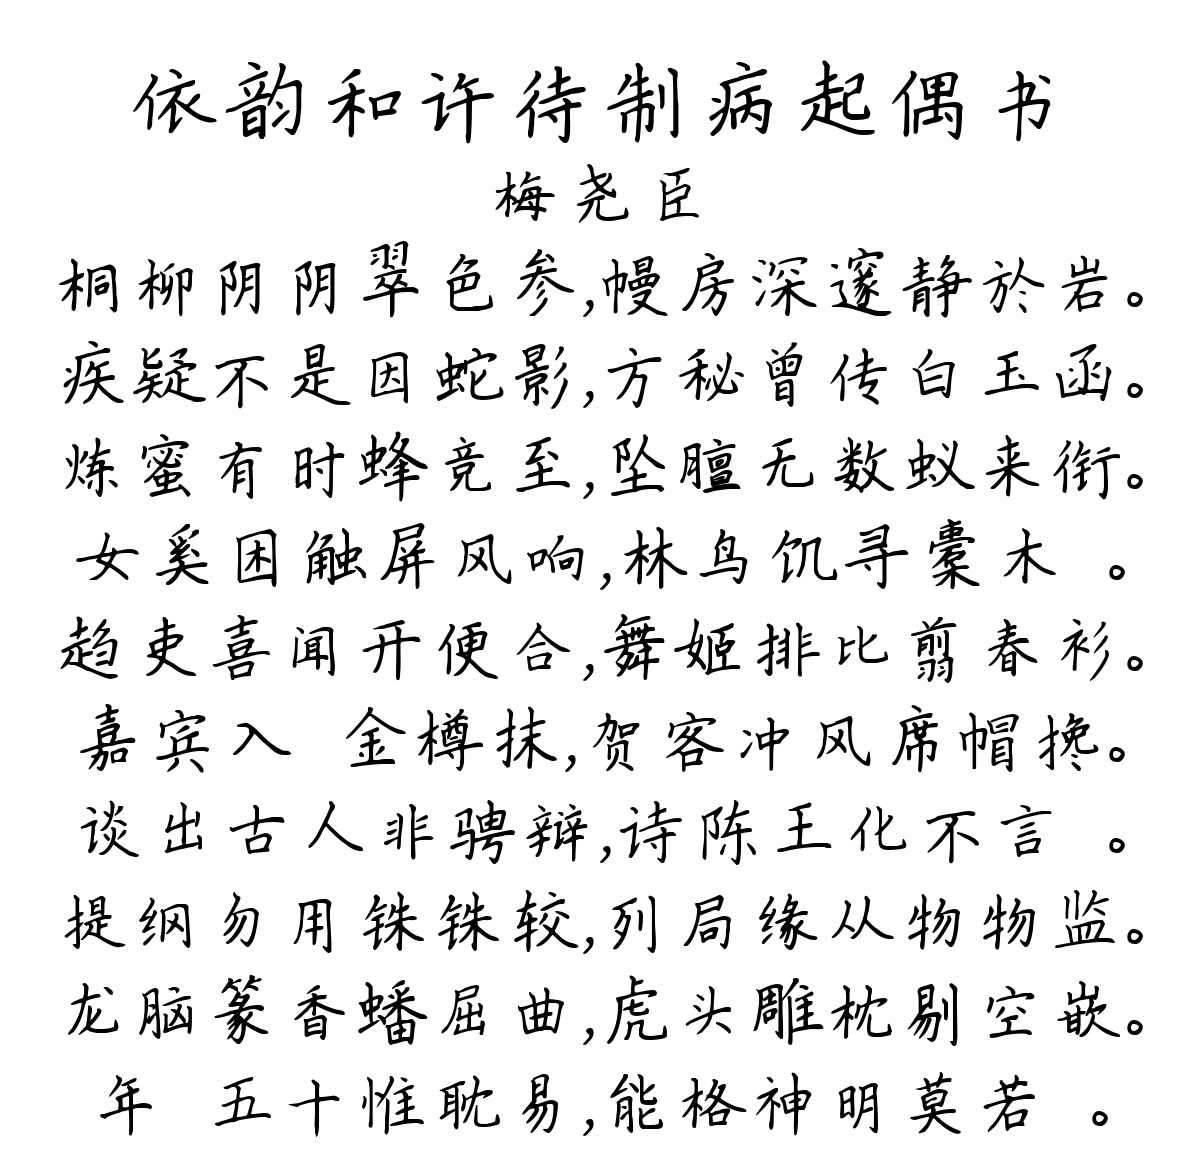 依韵和许待制病起偶书
梅尧臣
桐柳阴阴翠色参,幔房深邃静於岩。
疾疑不是因蛇影,方秘曾传白玉函。
炼蜜有时蜂竞至,坠膻无数蚁来衔。
女奚困触屏风响,林鸟饥寻橐木 。
趋吏喜闻开便合,舞姬排比翦春衫。
嘉宾入 金樽抹,贺客冲风席帽搀。
谈出古人非骋辩,诗陈王化不言 。
提纲勿用铢铢较,列局缘从物物监。
龙脑篆香蟠屈曲,虎头雕枕剔空嵌。
年 五十惟耽易,能格神明莫若 。